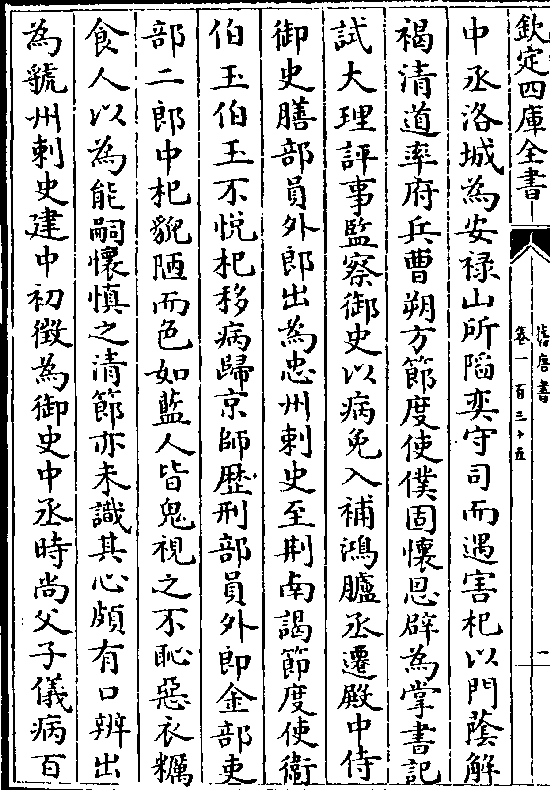 欽定四庫全書
舊唐書
卷一百三十五
一
中丞洛城為安禄山所陷奕守司而遇害杞以門蔭解
褐清道率府兵曹朔方節度使僕固懷恩辟為掌書記
試大理評事監察御史以病免入補鴻臚丞遷殿中侍
御史膳部員外郎出為忠州刺史至荆南謁節度使衛
伯玉伯玉不悦杞移病歸京師歴刑部員外郎金部吏
部二郎中杞貌陋而色如藍人皆鬼視之不恥惡衣糲
食人以為能嗣懷慎之清節亦未識其心頗有口辨出
為虢州刺史建中初徵為御史中丞時尚父子儀病百